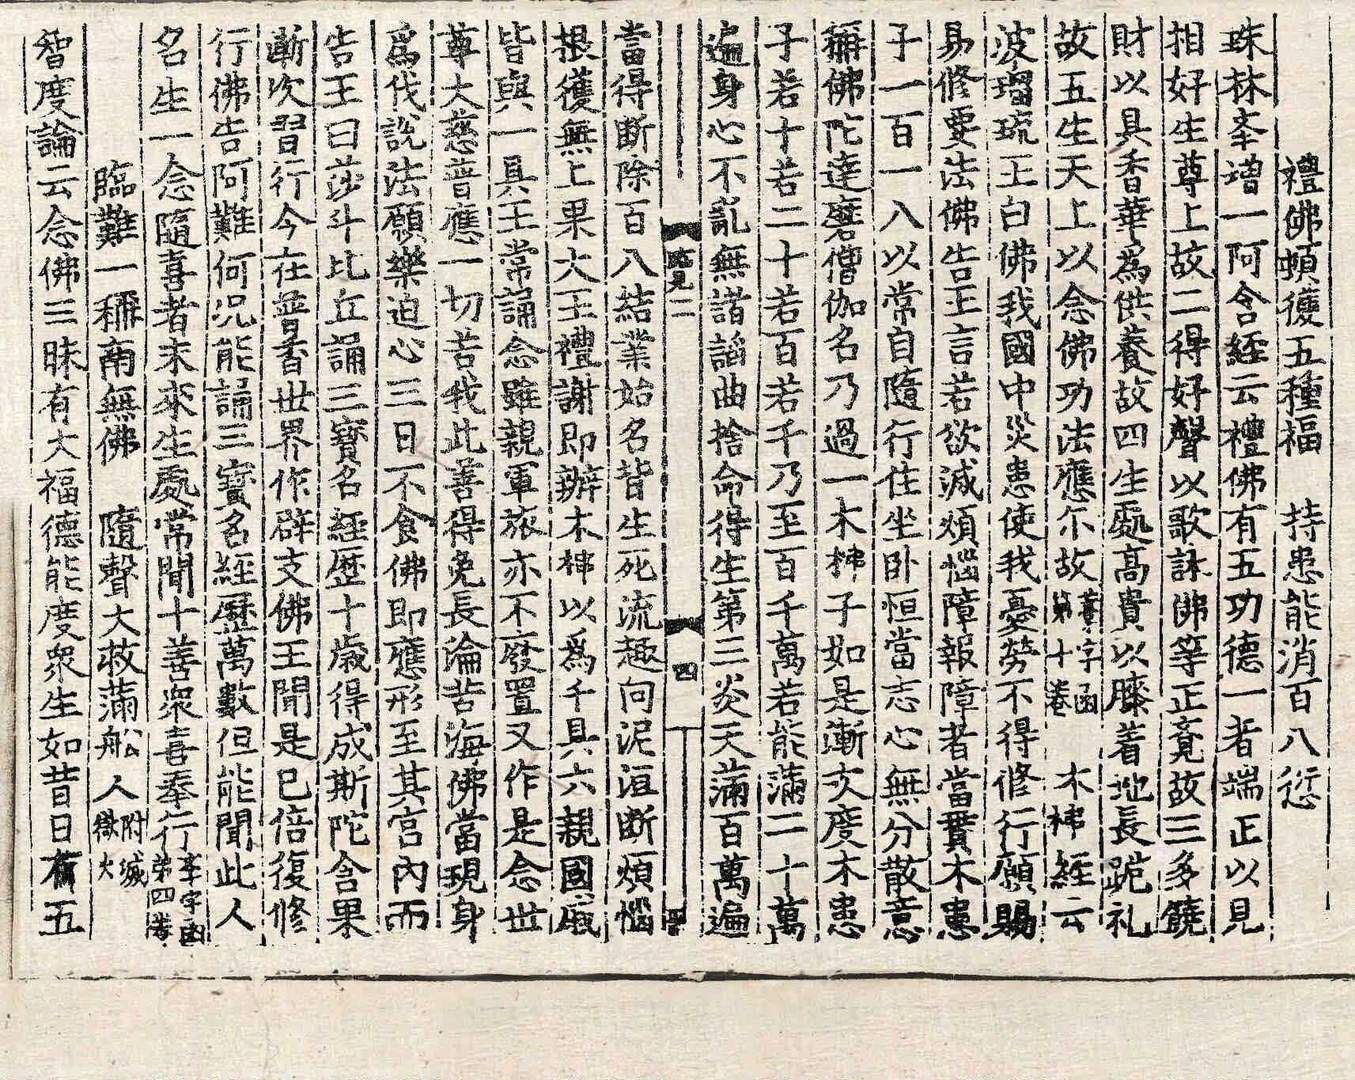 禮佛頓獲五種福　持患能消百八㤼
珠林峯增一阿含經云禮佛有五功德一者端正以見
相好生尊上故二得好聲以歌詠佛等正竟故三多饒
財以具香華為供養故四生處高貴以膝着地長跪礼
故五生天上以念佛功法應尓故 華字函第十卷 木槵經云
波瑠琉王白佛我國中災患使我憂勞不得修行願賜
易修要法佛告王言若欲滅煩惱障報障者當貫木患
子一百一八以常自隨行住坐卧恒當志心無分散意
稱佛陀達磨僧伽名乃過一木槵子如是漸次度木患
子若十若二十若百若千乃至百千萬若能滿二十萬
遍身心不亂無諸諂曲捨命得生第三炎天滿百萬遍
略見二　四
當得断除百八結業始名背生死流趣向泥洹断煩惱
根獲無上果大王禮謝即辦木槵以爲千具六親國戚
皆與一具王常誦念雖親軍旅亦不廢置又作是念世
尊大慈普應一切若我此善得免長淪苦海佛當現身
爲伐說法願樂迫心三日不食佛即應形至其宮內而
告王曰莎斗比丘誦三寶名經歷十歲得成斯陀含果
漸次習行今在普香世界作辟支佛王聞是已倍復修
行佛告阿難何况能誦三寶名經歷萬數但能聞此人
名生一念隨喜者未來生處常聞十善衆喜奉行 峯字函第四卷
臨難一稱南無佛　隨聲大救滿舩人
智度論云念佛三昧有大福德能度衆生如昔日有五